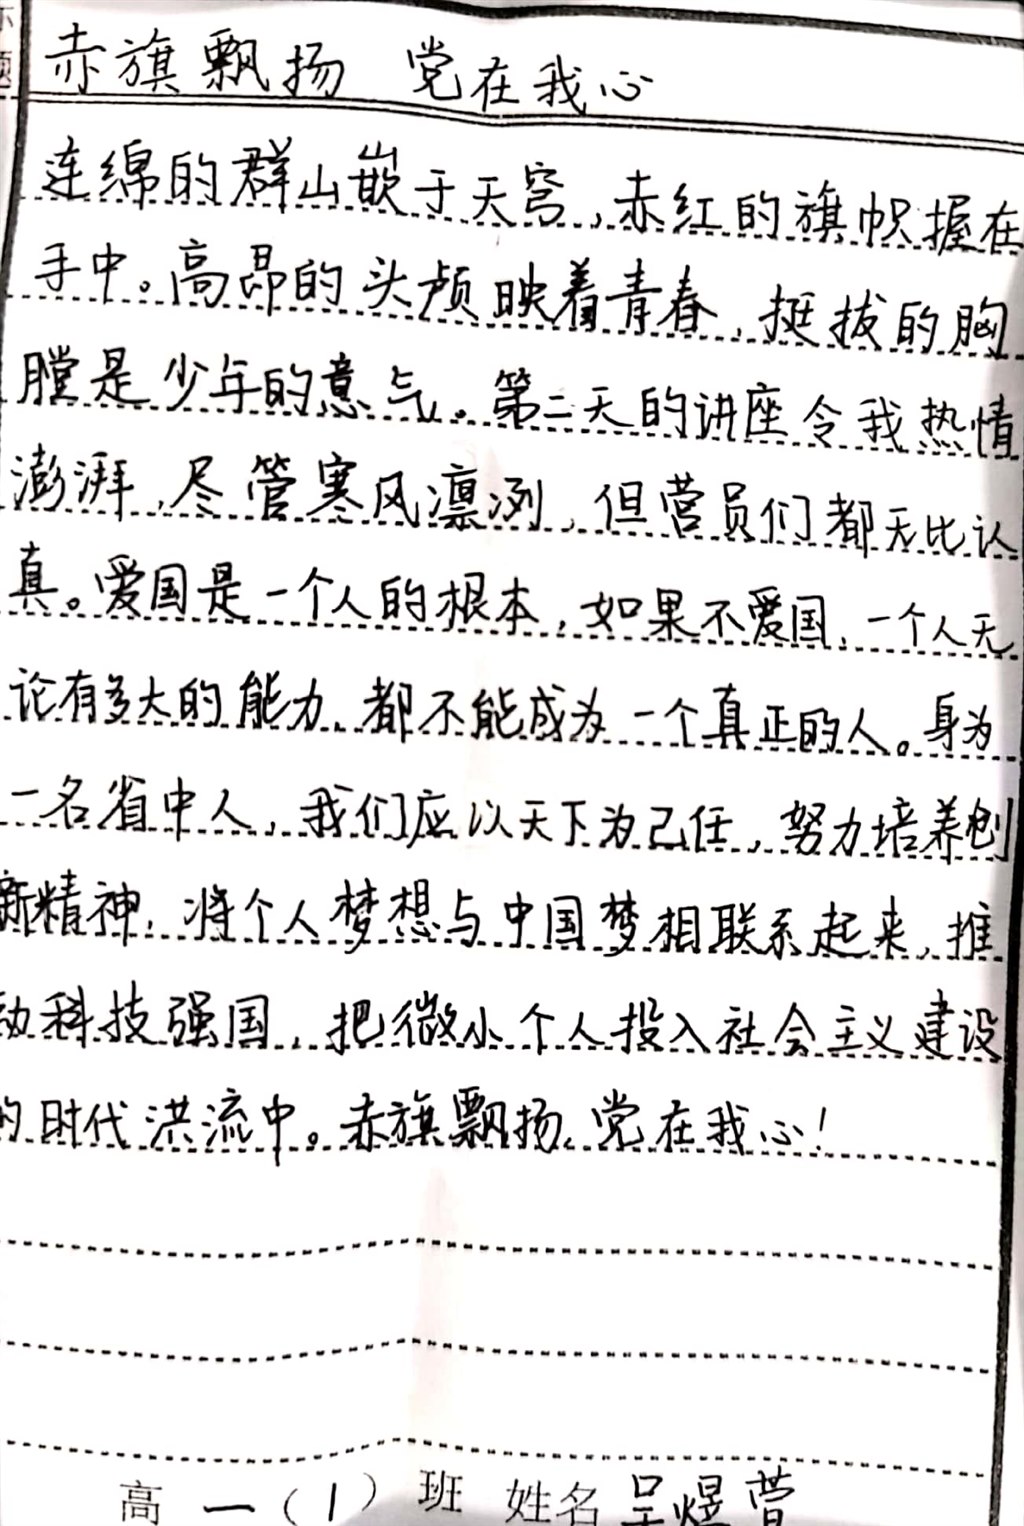 标题
赤旗飘扬 党在我心
连绵的群山嵌于天穹,赤红的旗帜握在
手中。高昂的头颅映着青春,挺拔的胸
膛是少年的意气。第二天的讲座令我热情
澎湃,尽管寒风凛冽,但营员们都无比认
真。爱国是一个人的根本,如果不爱国,一个人无
论有多大的能力,都不能成为一个真正的人。身为
一名省中人,我们应以天下为己任,努力培养创
新精神,将个人梦想与中国梦相联系起来,推
动科技强国,把微小个人投入社会主义建设
的时代洪流中。赤旗飘扬,党在我心!
高一(1)班 姓名吴煜萱